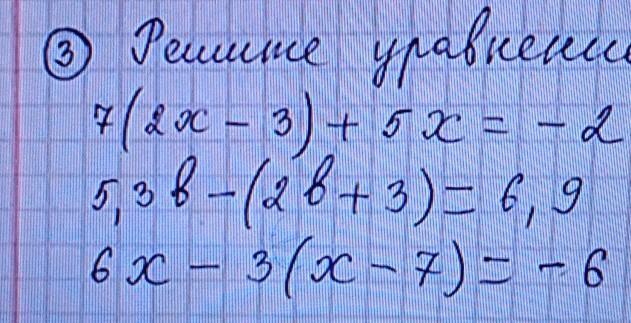 ③ Решите уравнение
7(2x - 3) + 5x = -2
5,3в - (2в + 3) = 6,9
6x - 3(x - 7) = -6